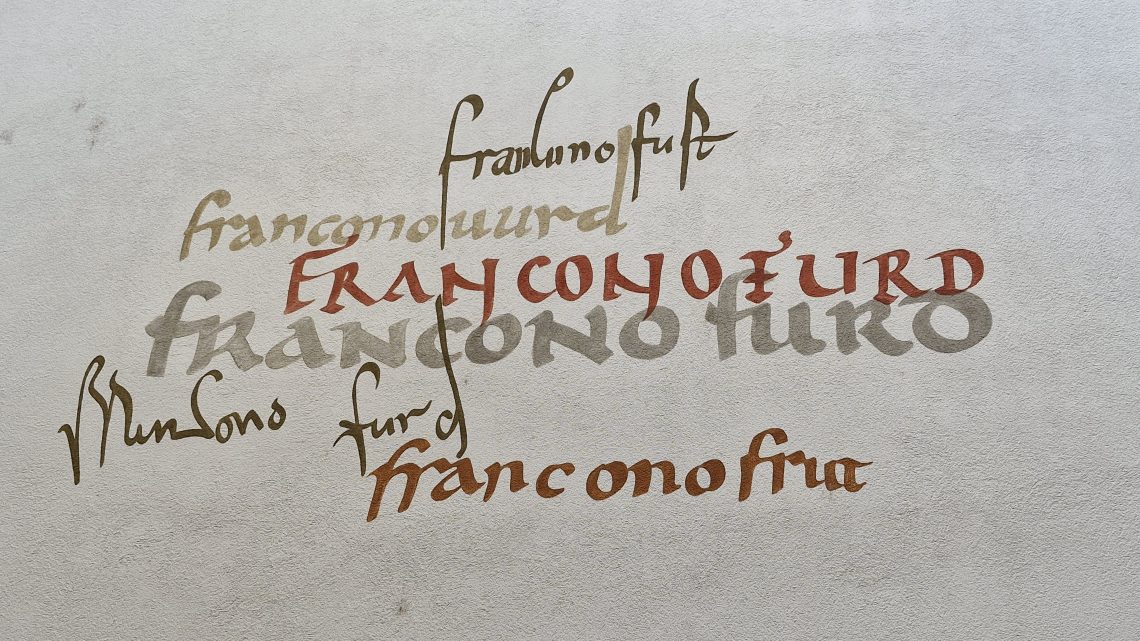 franconofurt
franconouurd
FRANCONOFURD
francono furd
francono furd
franconofurt